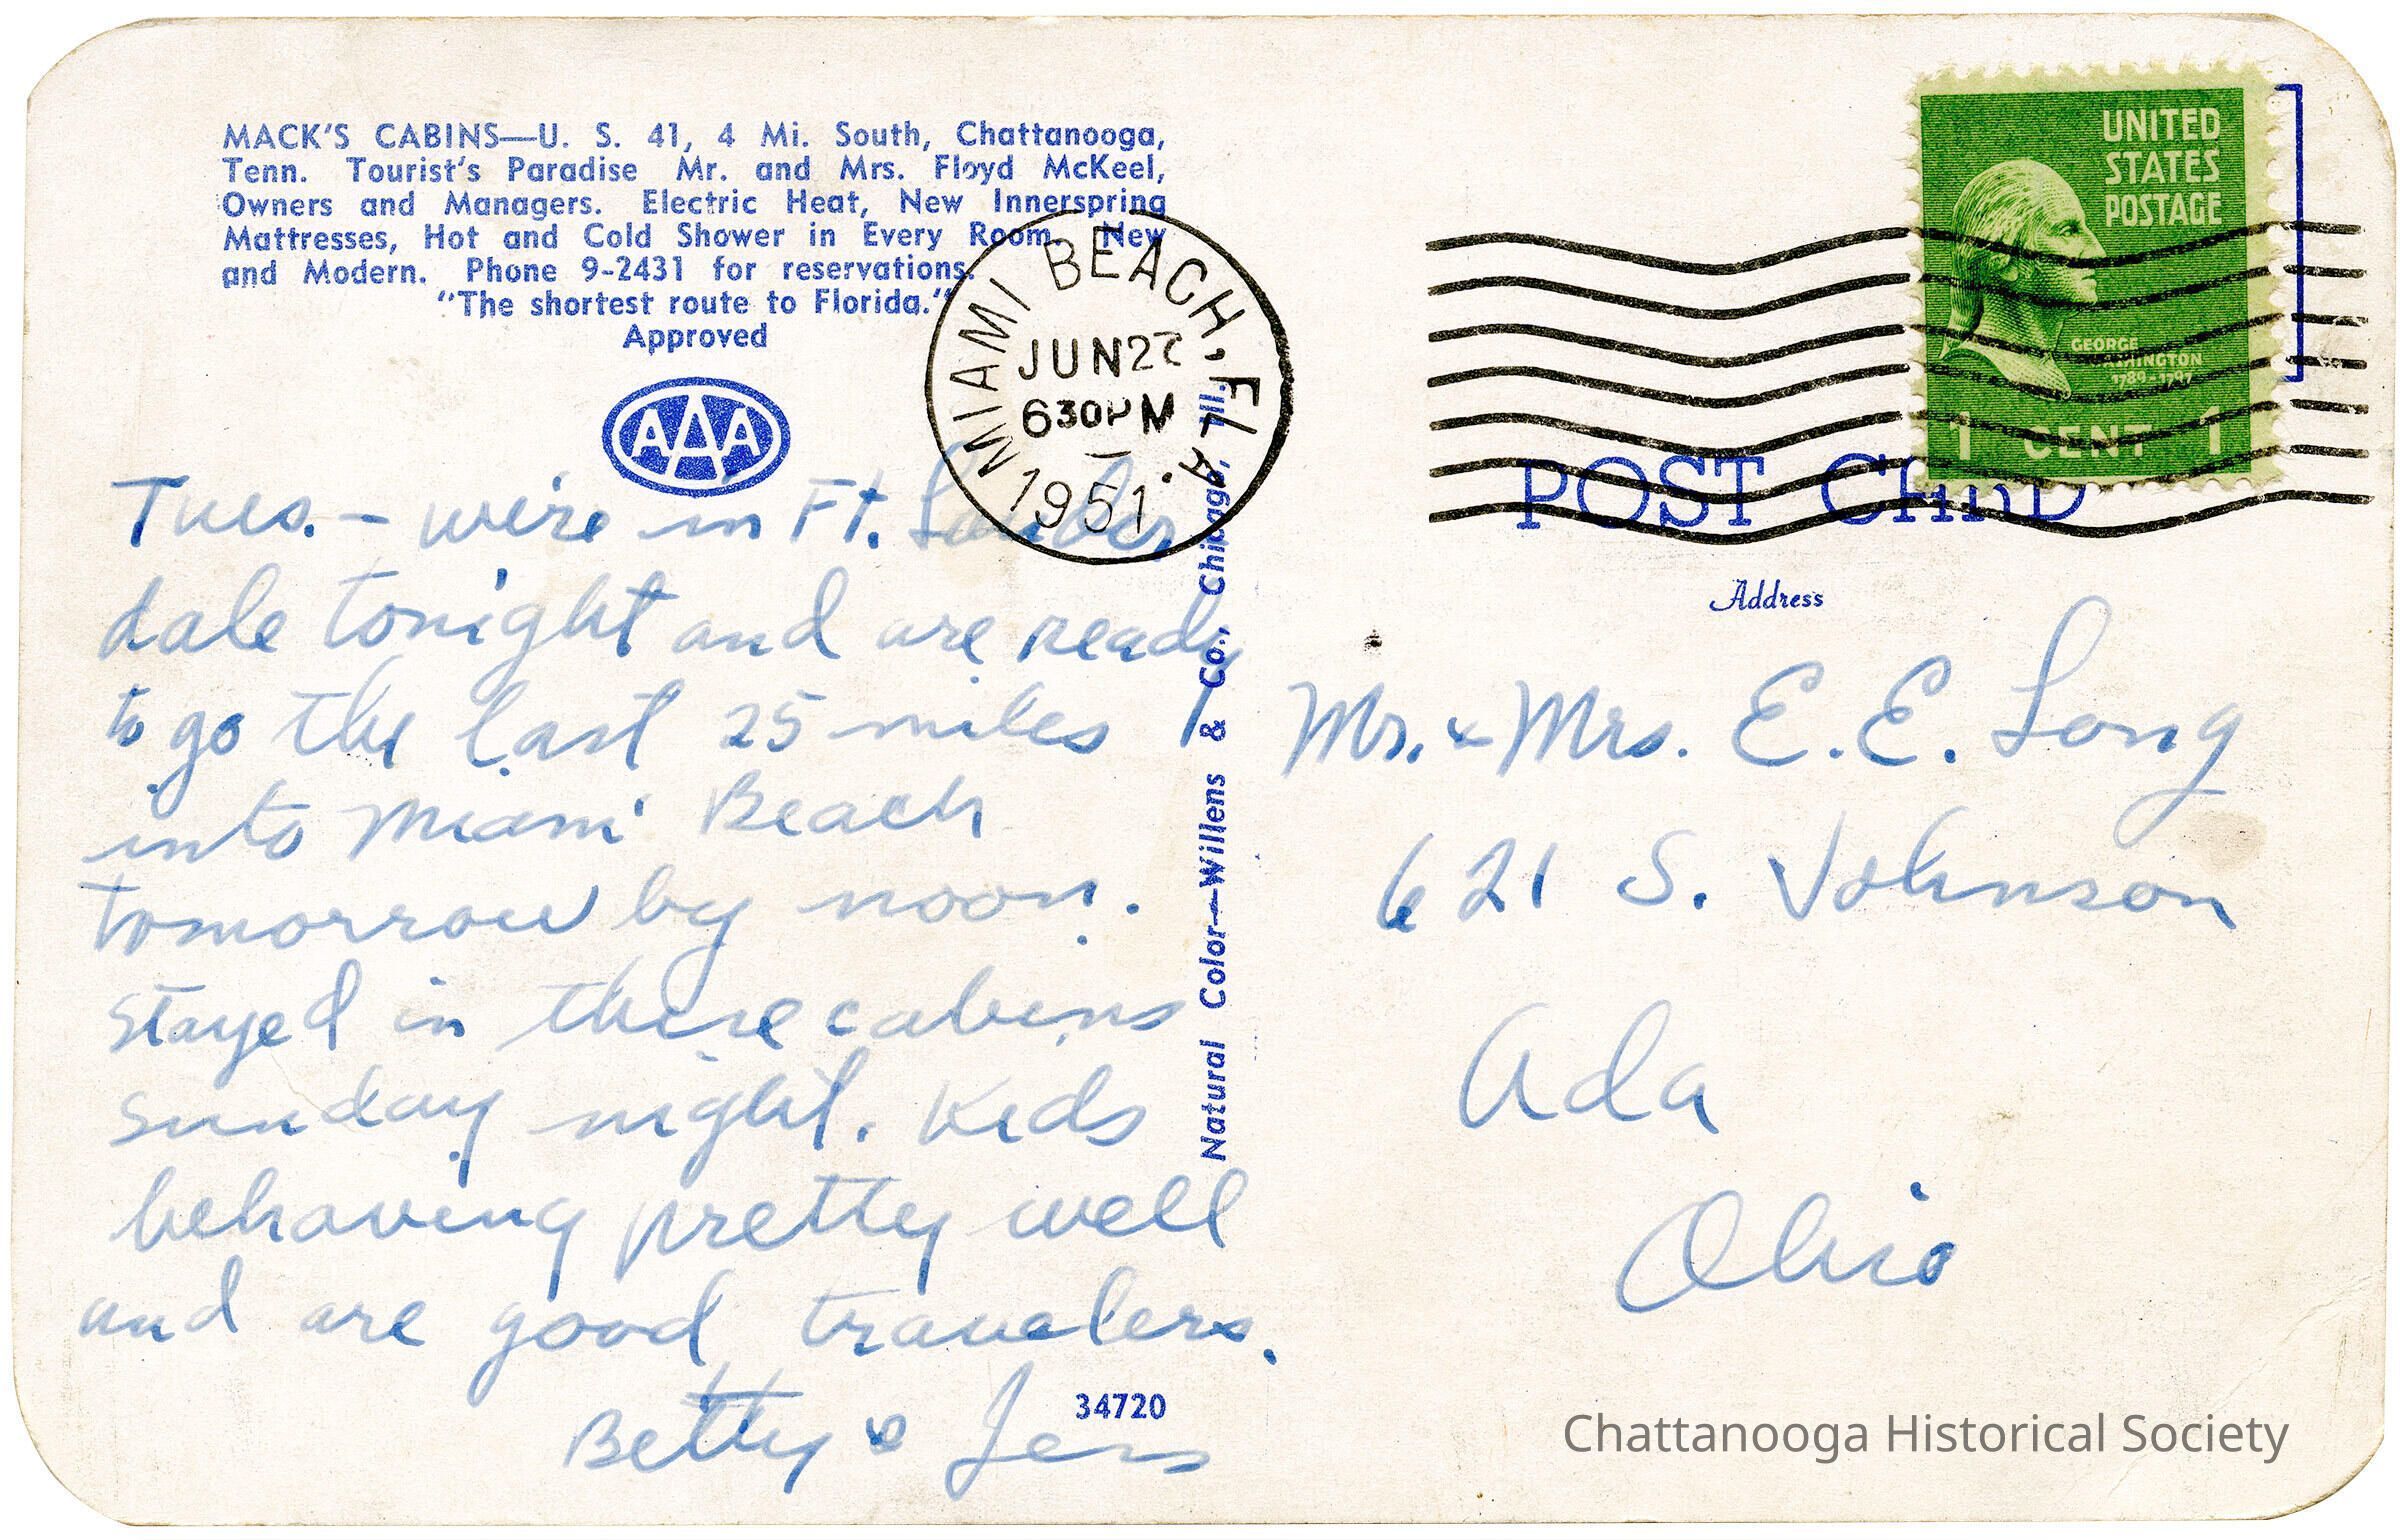 MACK'S CABINS—U. S. 41, 4 Mi. South, Chattanooga,
Tenn. Tourist's Paradise Mr. and Mrs. Floyd McKeel,
Owners and Managers. Electric Heat, New Innerspring
Mattresses, Hot and Cold Shower in Every Room. New
and Modern. Phone 9-2431 for reservations.
"The shortest route to Florida."
Approved
AAA
Tues. - we're in Ft. Lauder
dale tonight and are ready
to go the last 25 miles
into Miami Beach
tomorrow by noon.
Stayed in these cabins
Sunday night. Kids
behaving pretty well
and are good travelers.
Betty &
34720
Natural Color—Willens & Co., Chicago, Ill.
MIAMI BEACH, FLA.
JUN 27
630PM
1951
UNITED
STATES
POSTAGE
GEORGE
WASHINGTON
1789-1797
1 CENT 1
POST CARD
Address
Mr. & Mrs. E. E. Long
621 S. Johnson
Ada
Ohio
Chattanooga Historical Society